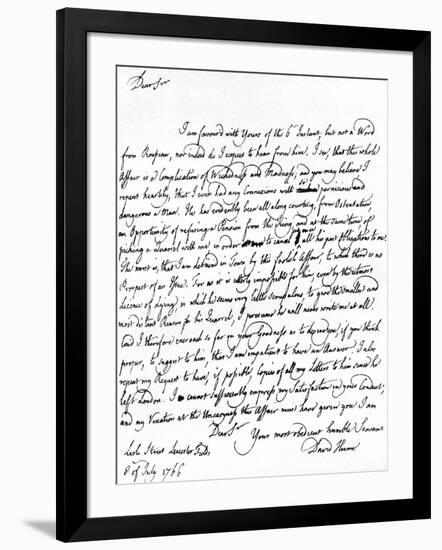 Dear Sir
I am favoured with Yours of the 6th Instant, but not a Word
from Rousseau, nor indeed do I expect to hear from him. I see, that the whole
Affair is a Complication of Wickedness and Madness; and you may believe I
repent heartily, that I ever had any Connexions with so pernicious and
dangerous a Man. He has evidently been all along courting, from Ostentation,
an Opportunity of refusing a Pension from the King, and at the same time of
picking a Quarrel with me, in order to cancel at once all his past Obligations to me.
The worst is, that I am detained in Town by this foolish Affair, to which there is no
Prospect of an Issue: For as it is utterly impossible for him, even by the utmost
Licence of Lying, in which he seems very little scrupulous, to give the smallest and
most distant Reason for his Quarrel, I presume he will never write me at all.
Cou'd I therefore encroach so far on your Goodness as to desire you, if you think
proper, to suggest to him, that I am impatient to have an Answer. I also
repeat my Request to have, if possible, Copies of all my Letters to him since he
left London. I cannot sufficiently express my Satisfaction in your Conduct,
and my Vexation at the Uneasyness this Affair must have given you. I am
Dear Sir
Your most obedient humble Servant
David Hume
Lisle Street Leicester Fields
8 of July 1766